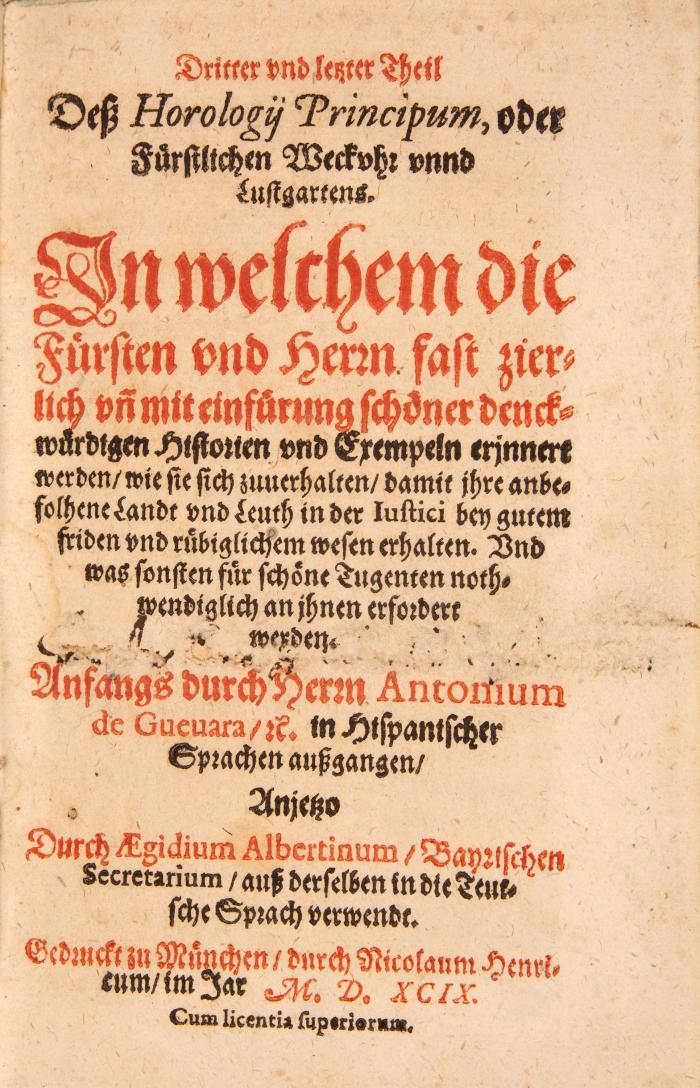 Dritter vnd letzter Theil
Deß Horologij Principum, oder
Fürstlichen Weckvhr vnnd
Lustgartens.
In welchem die
Fürsten vnd Herrn fast zier-
lich vñ mit einfürung schöner denck-
würdigen Historien vnd Exempeln erjnnert
werden/ wie sie sich zuuerhalten/ damit jhre anbe-
folhene Landt vnd Leuth in der Iustici bey gutem
friden vnd rübiglichem wesen erhalten. Vnd
was sonsten für schöne Tugenten noth-
wendiglich an jhnen erfordert
werden.
Anfangs durch Herrn Antonium
de Gueuara/ ꝛc. in Hispanischer
Sprachen außgangen/
Anjetzo
Durch Ægidium Albertinum / Bayrischen
Secretarium / auß derselben in die Teut-
sche Sprach verwendt.
Gedruckt zu München / durch Nicolaum Henri-
cum/ im Jar M. D. XCIX.
Cum licentia superiorum.